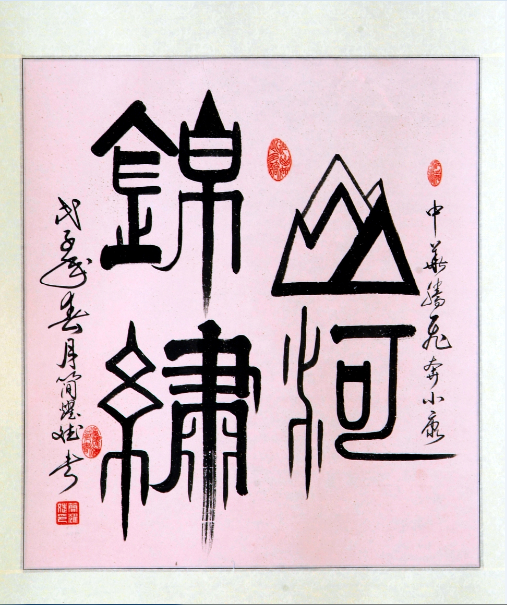 中華騰飛奔小康
山河
錦繡
戊子年春月簡娃书